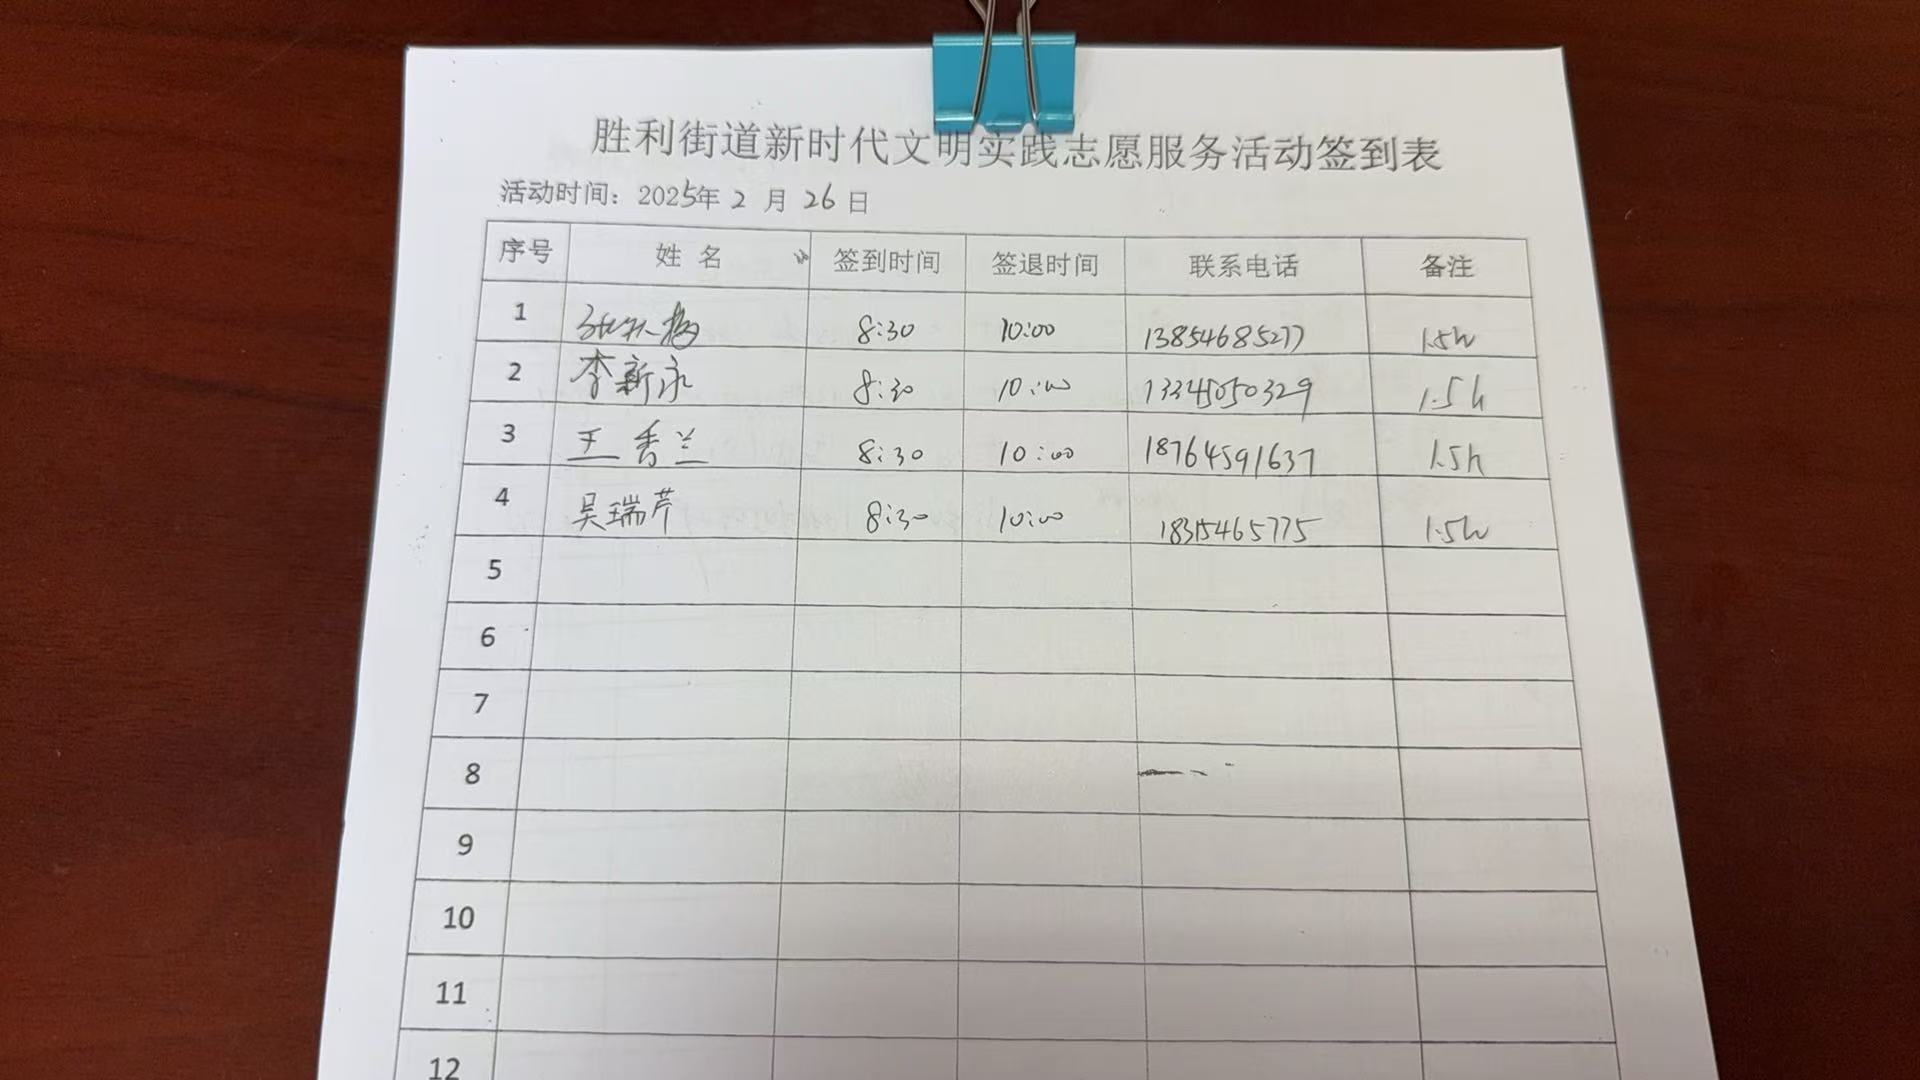 胜利街道新时代文明实践志愿服务活动签到表
活动时间：2025年 2 月 26 日
序号 姓 名 签到时间 签退时间 联系电话 备注
1 8:30 10:00 13854685277 1.5h
2 李新永 8:30 10:00 13345050329 1.5h
3 王香兰 8:30 10:00 18764591637 1.5h
4 吴瑞芹 8:30 10:00 18315465775 1.5h
5
6
7
8
9
10
11
12